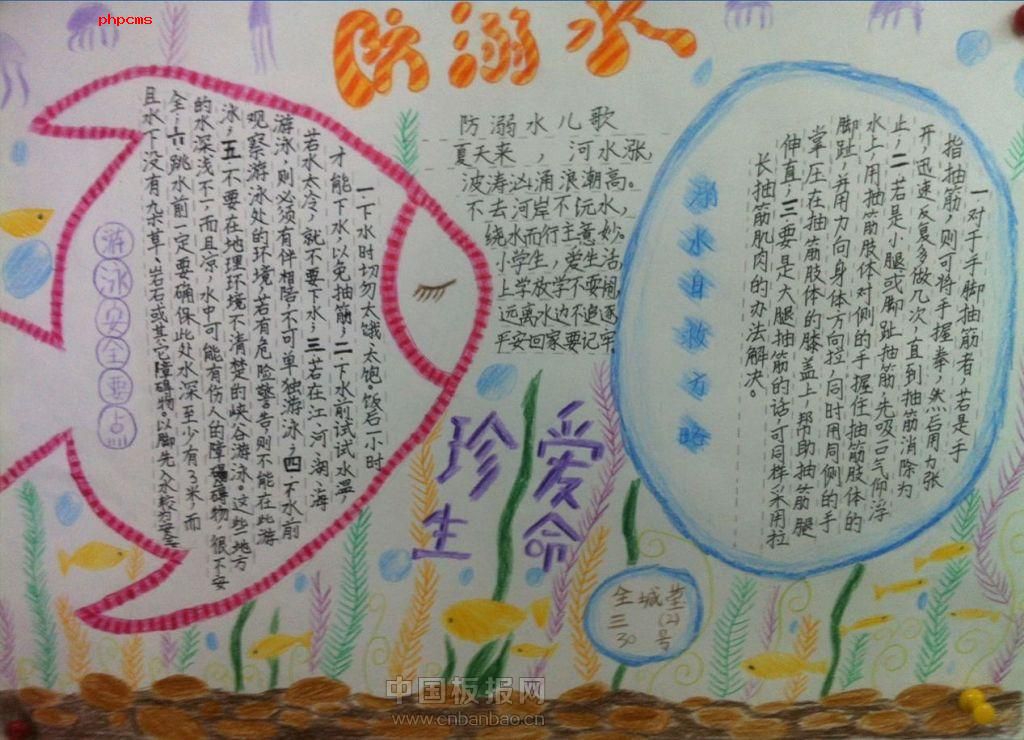 phpcms
防溺水
游泳安全要点
一下水时切勿太饿、太饱。饭后一小时
才能下水,以免抽筋;二下水前试试水温
若水太冷,就不要下水;三若在江、河、湖、海
游泳,则必须有伴相陪不可单独游泳;四下水前
观察游泳处的环境,若有危险警告则不能在此游
泳;五不要在地理环境不清楚的峡谷游泳。这些地方
的水深浅不一,而且凉,水中可能有伤人的障碍物,很不安
全;六跳水前一定要确保此处水深至少有3米,而
且水下没有杂草、岩石或其它障碍物以脚先入水较为安全
防溺水儿歌
夏天来,河水涨,
波涛汹涌浪潮高。
不去河岸不玩水,
绕水而行主意妙。
小学生,爱生活,
上学放学不要拐,
远离水边不追逐
平安回家要记牢。
珍爱
生命
溺水自救方略
一对于手脚抽筋者,若是手
指抽筋,则可将手握拳,然后用力张
开,迅速反复多做几次,直到抽筋消除为
止;二若是小腿或脚趾抽筋,先吸一口气仰浮
水上,用抽筋肢体对侧的手握住抽筋肢体的
脚趾,并用力向身体方向拉,同时用同侧的手
掌压在抽筋肢体的膝盖上,帮助抽筋腿
伸直;三要是大腿抽筋的话,可同样采用拉
长抽筋肌肉的办法解决。
三(2)
30号
中国板报网
www.cnbanbao.cn